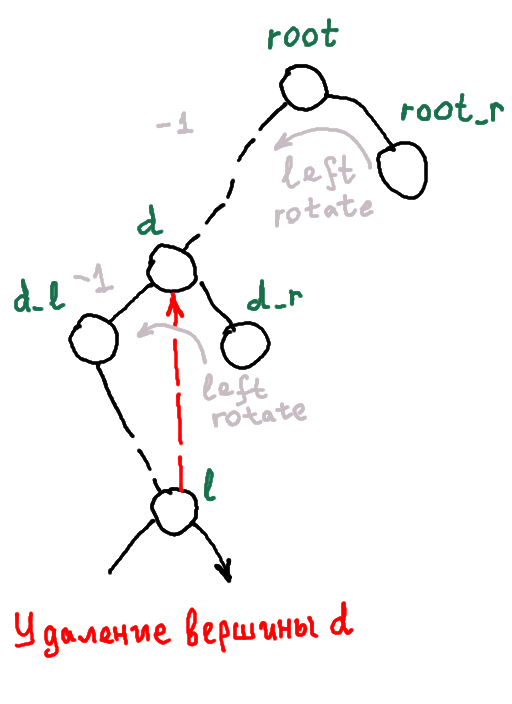 root
root_r
-1
left
rotate
d
-1
d_l
d_r
left
rotate
l
Удаление вершины d